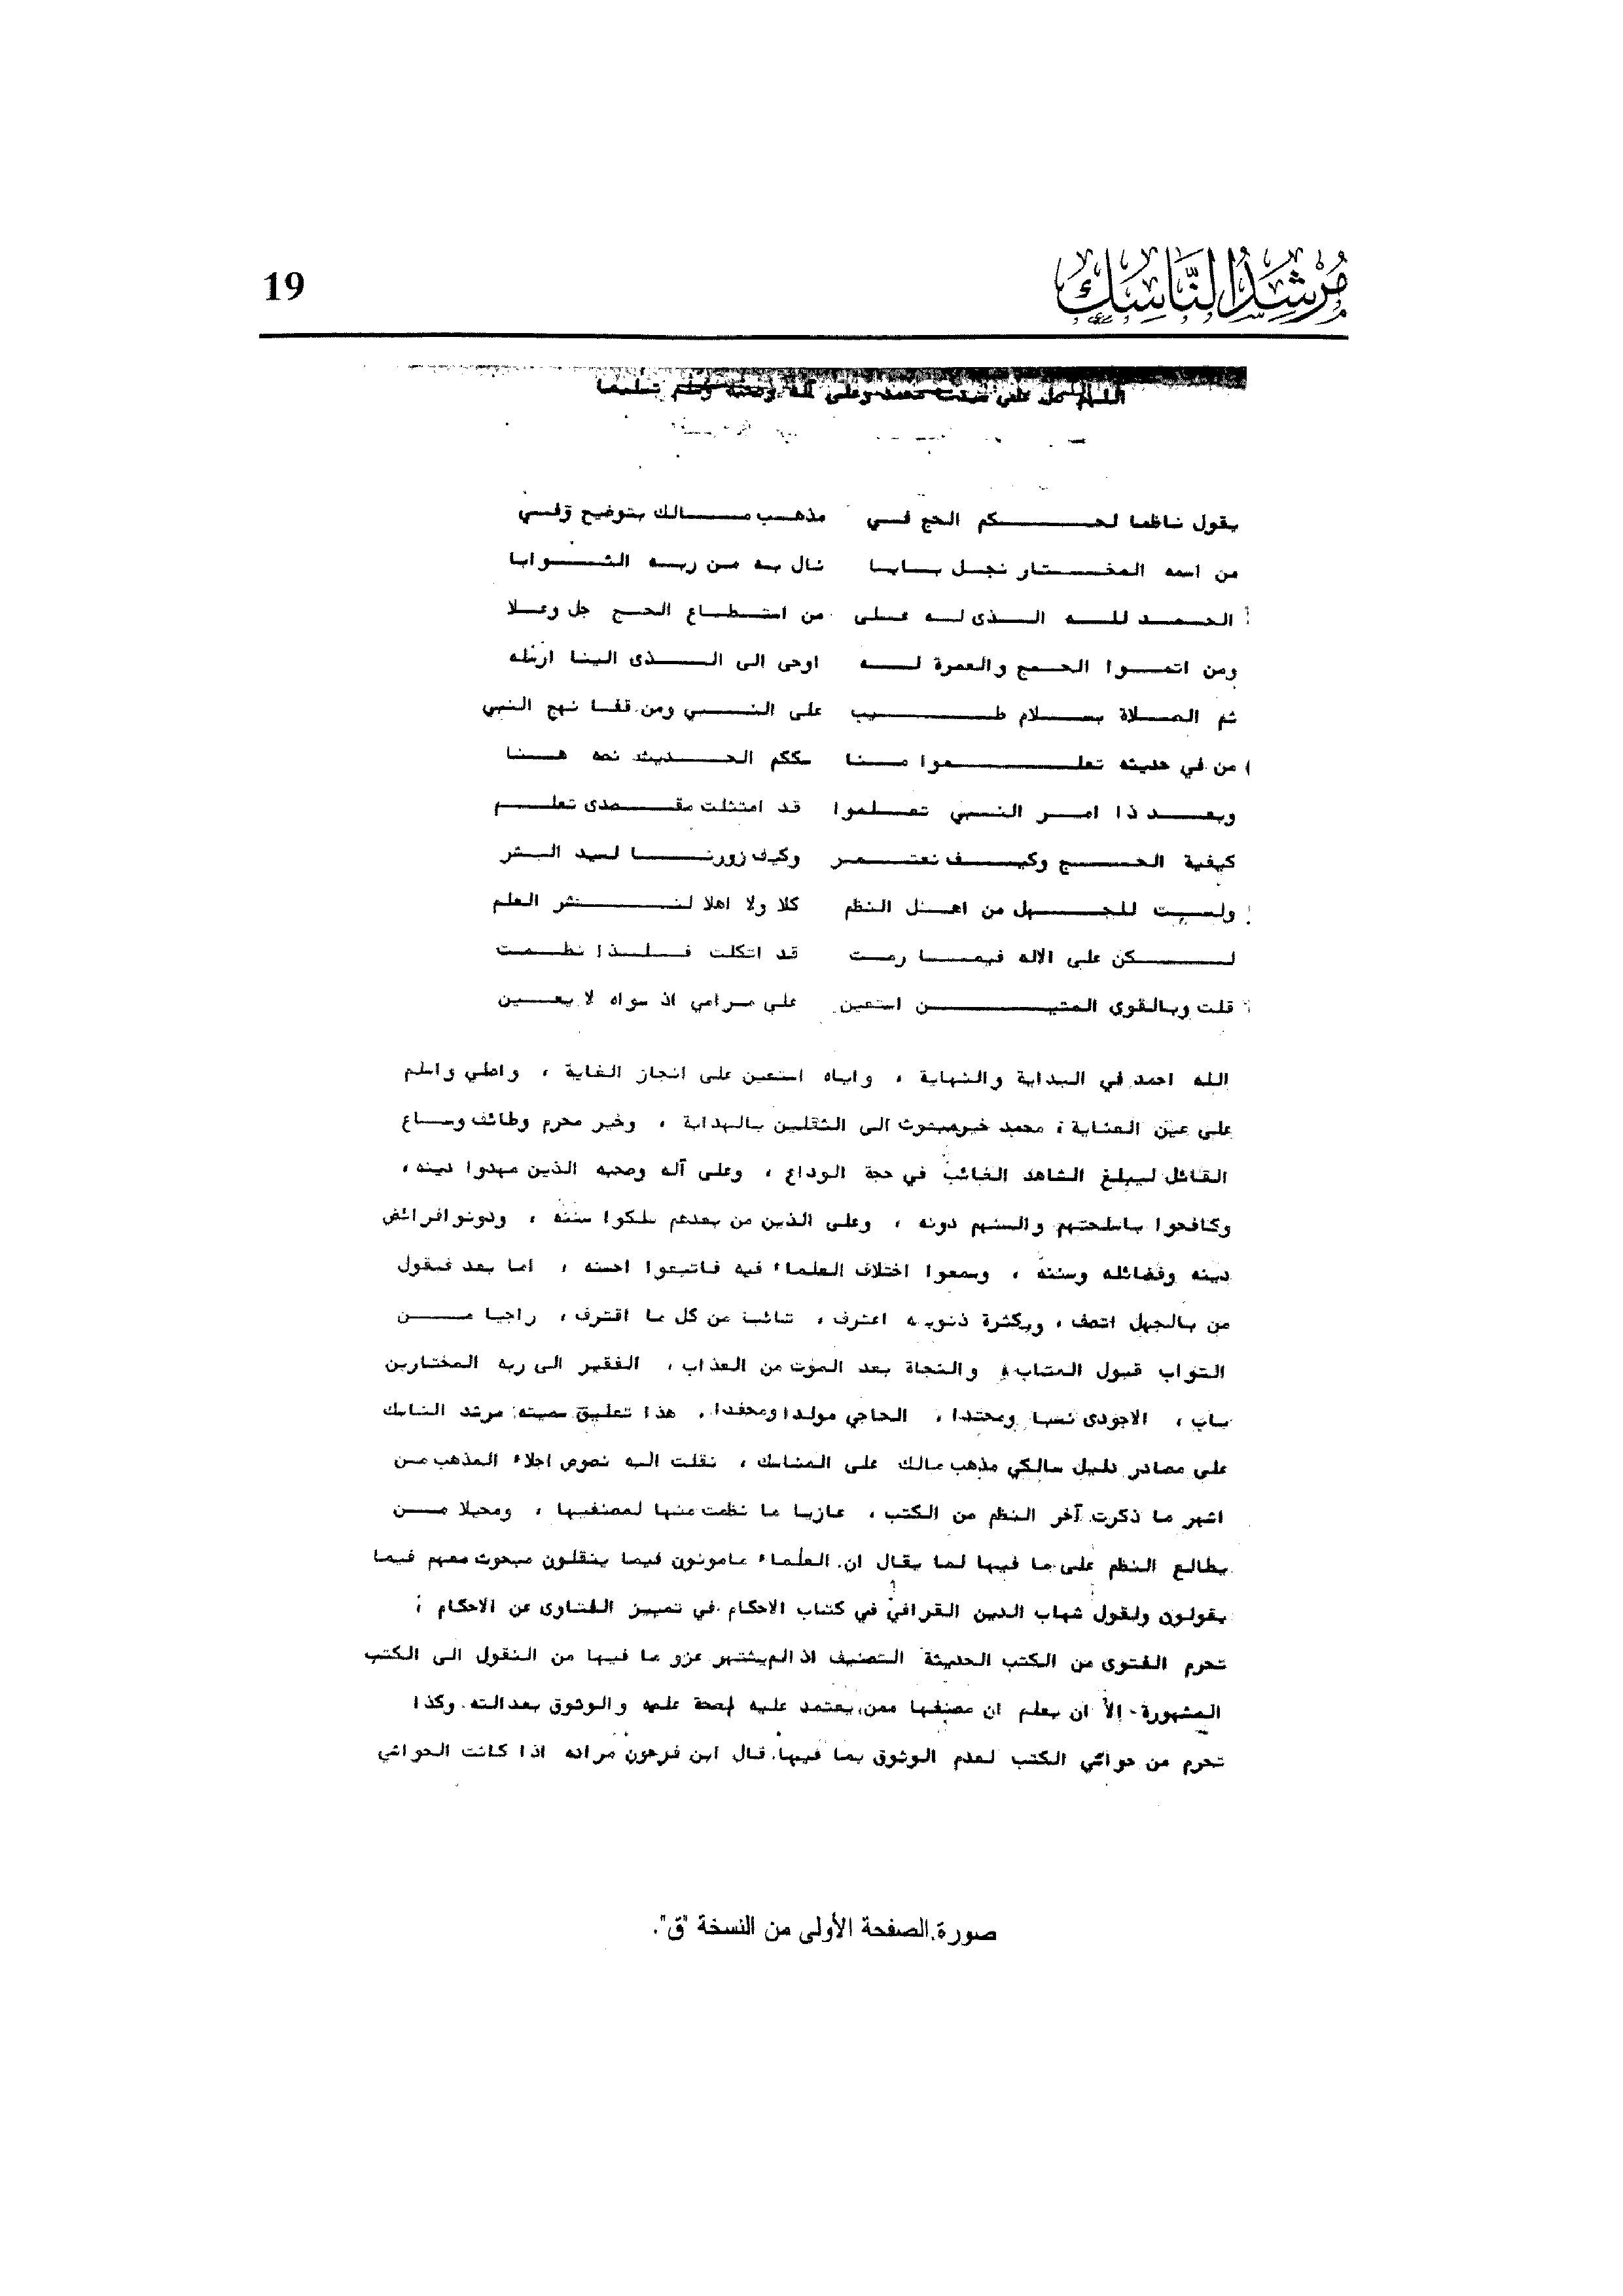 مُرْشِدُ النَّاسِكِ
19
اللهم صل على سيدنا محمد وعلى آله وصحبه وسلم تسليما
يقول ناظما لحكم الحج في مذهب مالك بتوضيح وفي
من اسمه المختار نجل بابا نال به من ربه الثوابا
الحمد لله الذى له على من استطاع الحج جل وعلا
ومن اتموا الحج والعمرة له اوحى الى الذى الينا ارسله
ثم الصلاة بسلام طيب على النبي ومن قفا نهج النبي
من في حديثه تعلموا منا سككم الحديث نصه هنا
وبعد ذا امر النبي تعلموا قد امتثلت مقصدى تعلم
كيفية الحج وكيف نعتمر وكيف زورنا لسيد البشر
ولست للجهل من اهل النظم كلا ولا اهلا لنشر العلم
لكن على الاله فيما رمت قد اتكلت فلذا نظمت
قلت وبالقوى المتين استعين على مرامي اذ سواه لا يعين
الله احمد في البداية والنهاية ، واياه استعين على انجاز الغاية ، واصلي واسلم
على عين العناية ، محمد خير مبعوث الى الثقلين بالهداية ، وخير محرم وطائف وساع
القائل ليبلغ الشاهد الغائب في حجة الوداع ، وعلى آله وصحبه الذين مهدوا دينه ،
وكافحوا باسلحتهم والسنهم دونه ، وعلى الذين من بعدهم سلكوا سننه ، ودونوا فرائض
دينه وفضائله وسننه ، وسمعوا اختلاف العلماء فيه فاتبعوا احسنه ، اما بعد فيقول
من بالجهل اتصف ، وبكثرة ذنوبه اعترف ، تائبا من كل ما اقترف ، راجيا من
التواب قبول المتاب ، والنجاة بعد الموت من العذاب ، الفقير الى ربه المختار بن
باب ، الاجودى نسبا ومحتدا ، الحاجي مولدا ومحفدا ، هذا تعليق سميته: مرشد الناسك
على مصادر دليل سالكي مذهب مالك على المناسك ، نقلت اليه نصوص اجلاء المذهب من
اشهر ما ذكرت آخر النظم من الكتب ، عازيا ما نظمت منها لمصنفيها ، ومحيلا من
يطالع النظم على ما فيها لما يقال ان العلماء مامونون فيما ينقلون مبحوث معهم فيما
يقولون ولقول شهاب الدين القرافي في كتاب الاحكام في تمييز الفتاوى عن الاحكام :
تحرم الفتوى من الكتب الحديثة التصنيف اذا لم يشتهر عزو ما فيها من النقول الى الكتب
المشهورة - الا ان يعلم ان مصنفها ممن يعتمد عليه لصحة علمه والوثوق بعدالته. وكذا
تحرم من حواشي الكتب لعدم الوثوق بما فيها. قال ابن فرحون مراده اذا كانت الحواشي
صورة الصفحة الأولى من النسخة "ق".